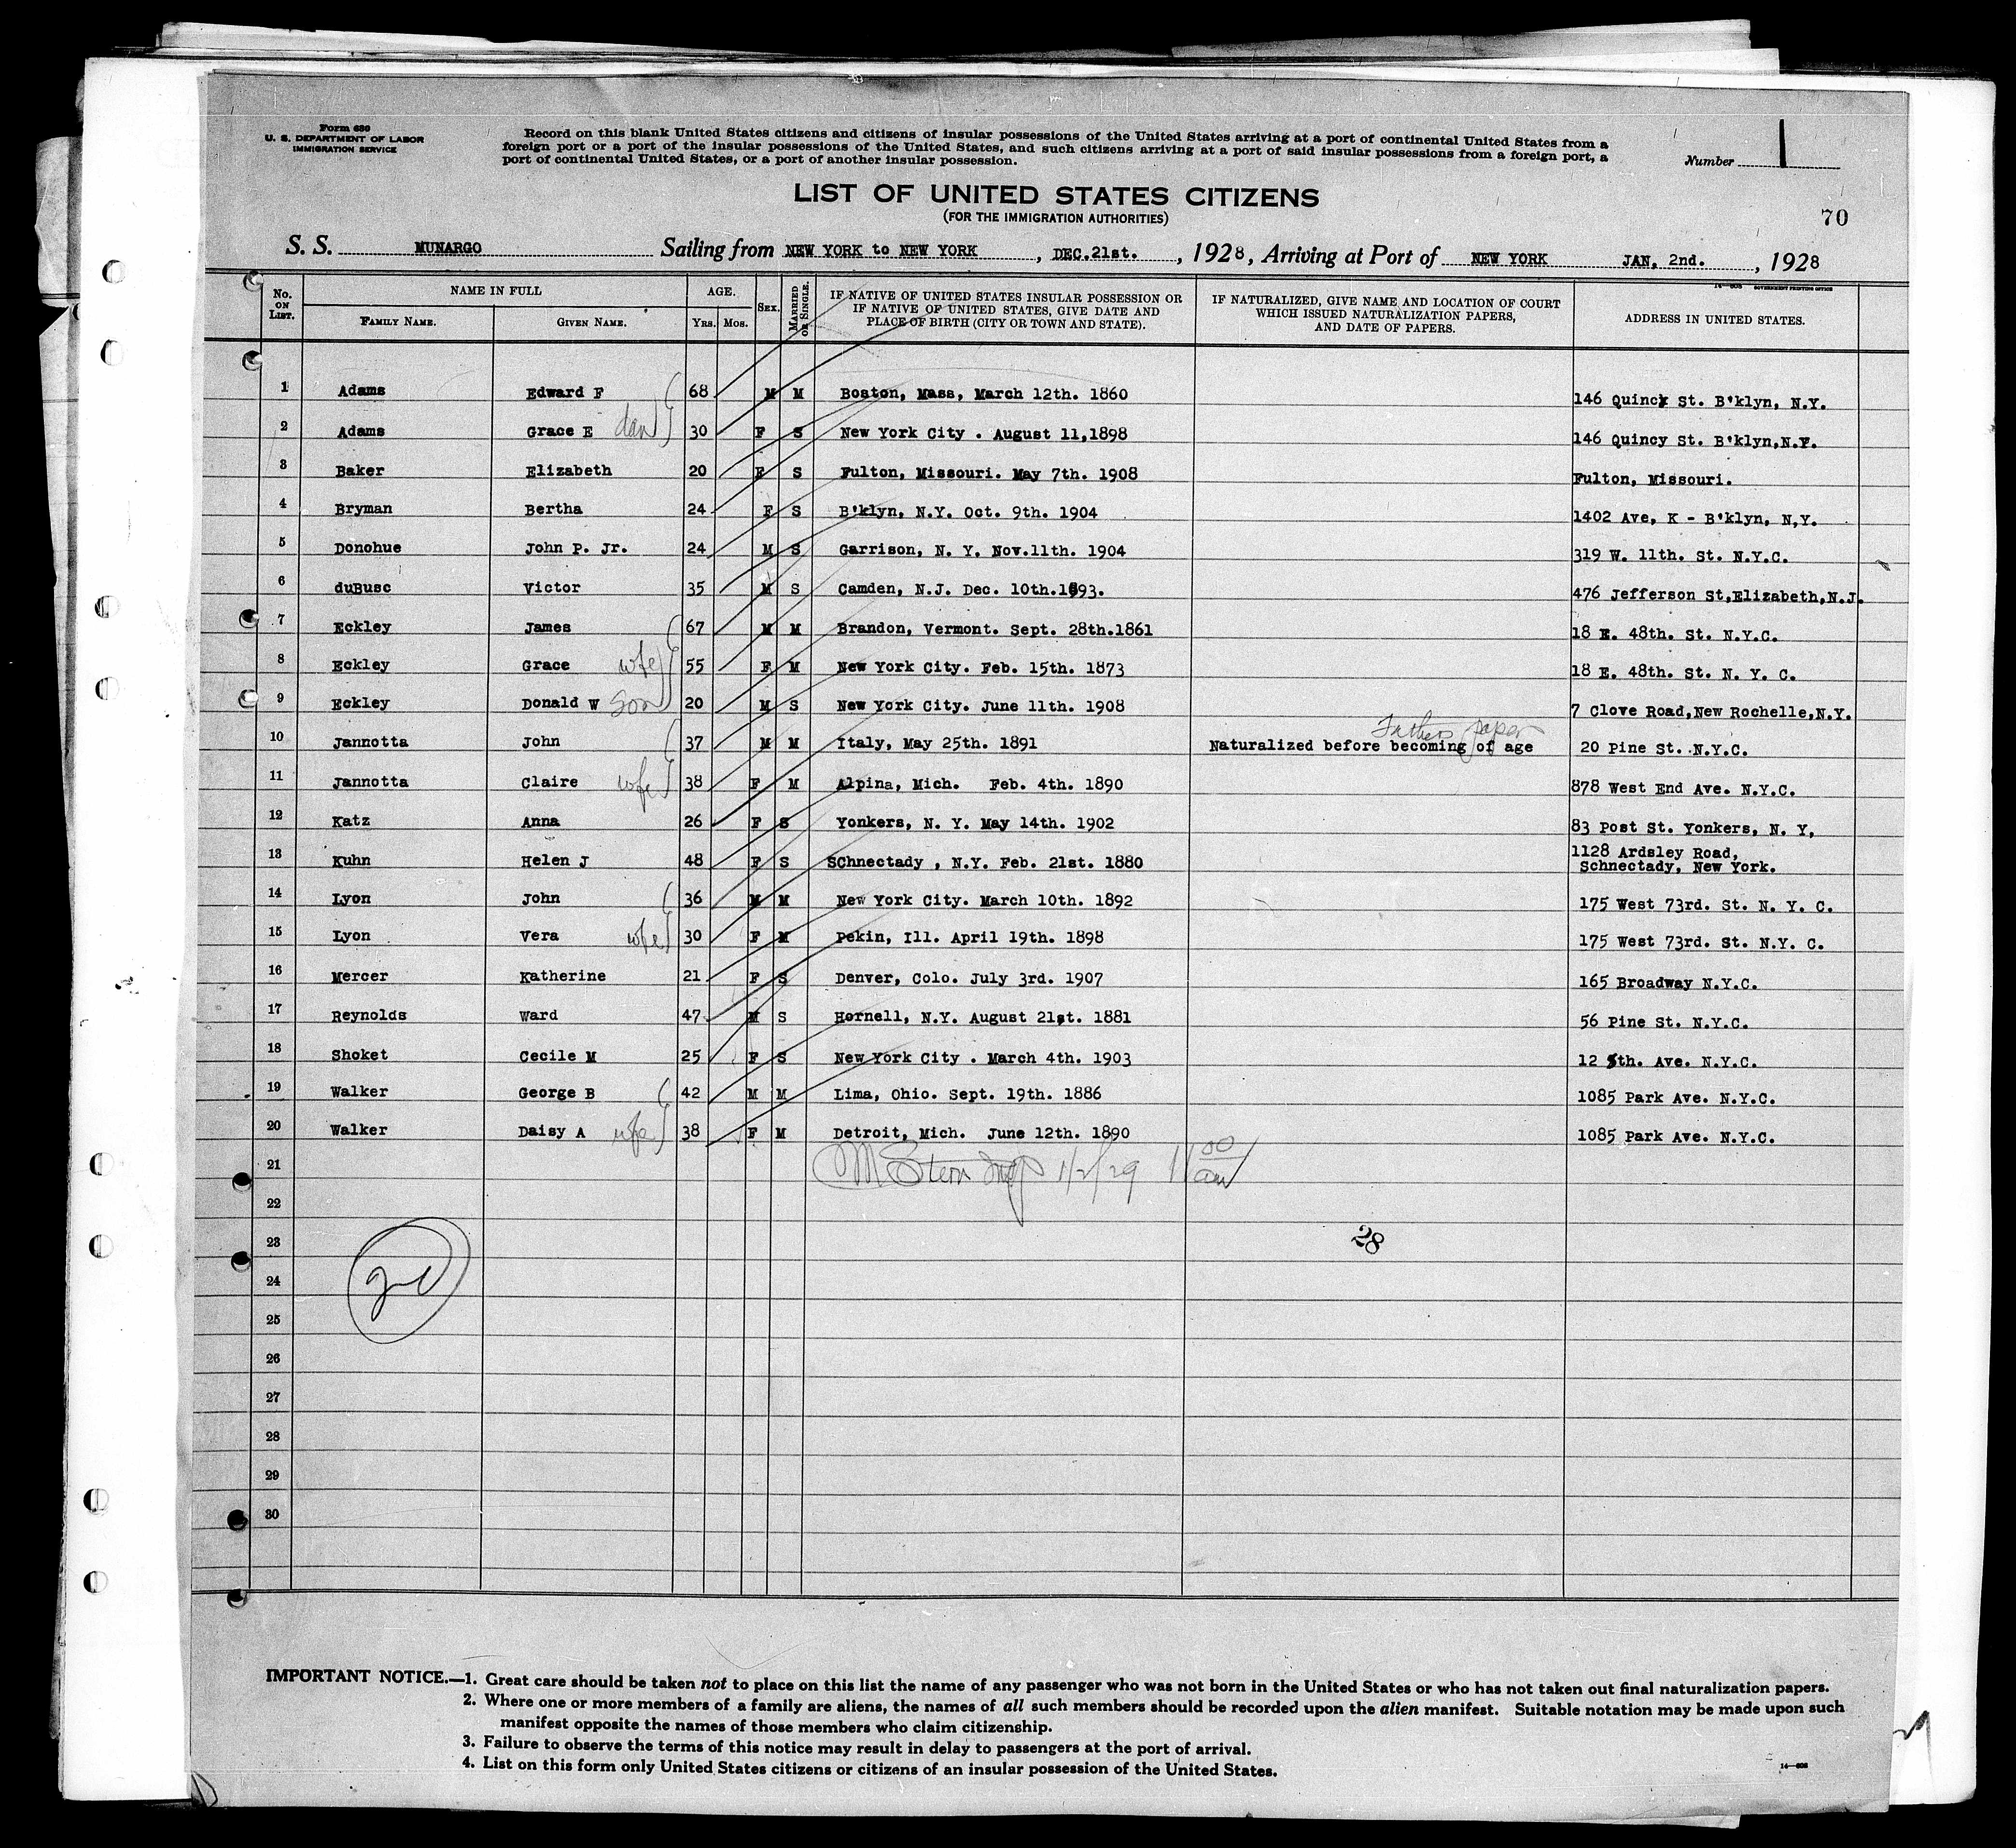 Form 630
U. S. DEPARTMENT OF LABOR
IMMIGRATION SERVICE
Record on this blank United States citizens and citizens of insular possessions of the United States arriving at a port of continental United States from a
foreign port or a port of the insular possessions of the United States, and such citizens arriving at a port of said insular possessions from a foreign port, a
port of continental United States, or a port of another insular possession.
Number 1
LIST OF UNITED STATES CITIZENS
(FOR THE IMMIGRATION AUTHORITIES)
70
S. S. MUNARGO Sailing from NEW YORK to NEW YORK, DEC.21st., 1928, Arriving at Port of NEW YORK JAN, 2nd., 1928
No. ON LIST. NAME IN FULL FAMILY NAME. GIVEN NAME. AGE. YRS. MOS. SEX. MARRIED OR SINGLE. IF NATIVE OF UNITED STATES INSULAR POSSESSION OR IF NATIVE OF UNITED STATES, GIVE DATE AND PLACE OF BIRTH (CITY OR TOWN AND STATE). IF NATURALIZED, GIVE NAME AND LOCATION OF COURT WHICH ISSUED NATURALIZATION PAPERS, AND DATE OF PAPERS. ADDRESS IN UNITED STATES.
1 Adams Edward F 68 M M Boston, Mass, March 12th. 1860 146 Quincy St. B'klyn, N.Y.
2 Adams Grace E dau 30 F S New York City . August 11,1898 146 Quincy St. B'klyn,N.Y.
3 Baker Elizabeth 20 F S Fulton, Missouri. May 7th. 1908 Fulton, Missouri.
4 Bryman Bertha 24 F S B'klyn, N.Y. Oct. 9th. 1904 1402 Ave, K - B'klyn, N,Y.
5 Donohue John P. Jr. 24 M S Garrison, N. Y. Nov.11th. 1904 319 W. 11th. St. N.Y.C.
6 duBusc Victor 35 M S Camden, N.J. Dec. 10th.1893. 476 Jefferson St,Elizabeth,N.J.
7 Eckley James 67 M M Brandon, Vermont. Sept. 28th.1861 18 E. 48th. St. N.Y.C.
8 Eckley Grace wife 55 F M New York City. Feb. 15th. 1873 18 E. 48th. St. N. Y. C.
9 Eckley Donald W son 20 M S New York City. June 11th. 1908 7 Clove Road,New Rochelle,N.Y.
Fathers paper
10 Jannotta John 37 M M Italy, May 25th. 1891 Naturalized before becoming of age 20 Pine St. N.Y.C.
11 Jannotta Claire wife 38 F M Alpina, Mich. Feb. 4th. 1890 878 West End Ave. N.Y.C.
12 Katz Anna 26 F S Yonkers, N. Y. May 14th. 1902 83 Post St. Yonkers, N. Y,
13 Kuhn Helen J 48 F S SChnectady , N.Y. Feb. 21st. 1880 1128 Ardsley Road,
Schnectady, New York.
14 Lyon John 36 M M New York City. March 10th. 1892 175 West 73rd. St. N. Y. C.
15 Lyon Vera wife 30 F M Pekin, Ill. April 19th. 1898 175 West 73rd. St. N.Y. C.
16 Mercer Katherine 21 F S Denver, Colo. July 3rd. 1907 165 Broadway N.Y.C.
17 Reynolds Ward 47 M S Hornell, N.Y. August 21st. 1881 56 Pine St. N.Y.C.
18 Shoket Cecile M 25 F S New York City . March 4th. 1903 12 5th. Ave. N.Y.C.
19 Walker George B 42 M M Lima, Ohio. Sept. 19th. 1886 1085 Park Ave. N.Y.C.
20 Walker Daisy A wife 38 F M Detroit, Mich. June 12th. 1890 1085 Park Ave. N.Y.C.
21 M Stern Insp 1/2/29 11 00 am
22
23 28
24
25
26
27
28
29
30
IMPORTANT NOTICE.—1. Great care should be taken not to place on this list the name of any passenger who was not born in the United States or who has not taken out final naturalization papers.
2. Where one or more members of a family are aliens, the names of all such members should be recorded upon the alien manifest. Suitable notation may be made upon such
manifest opposite the names of those members who claim citizenship.
3. Failure to observe the terms of this notice may result in delay to passengers at the port of arrival.
4. List on this form only United States citizens or citizens of an insular possession of the United States.